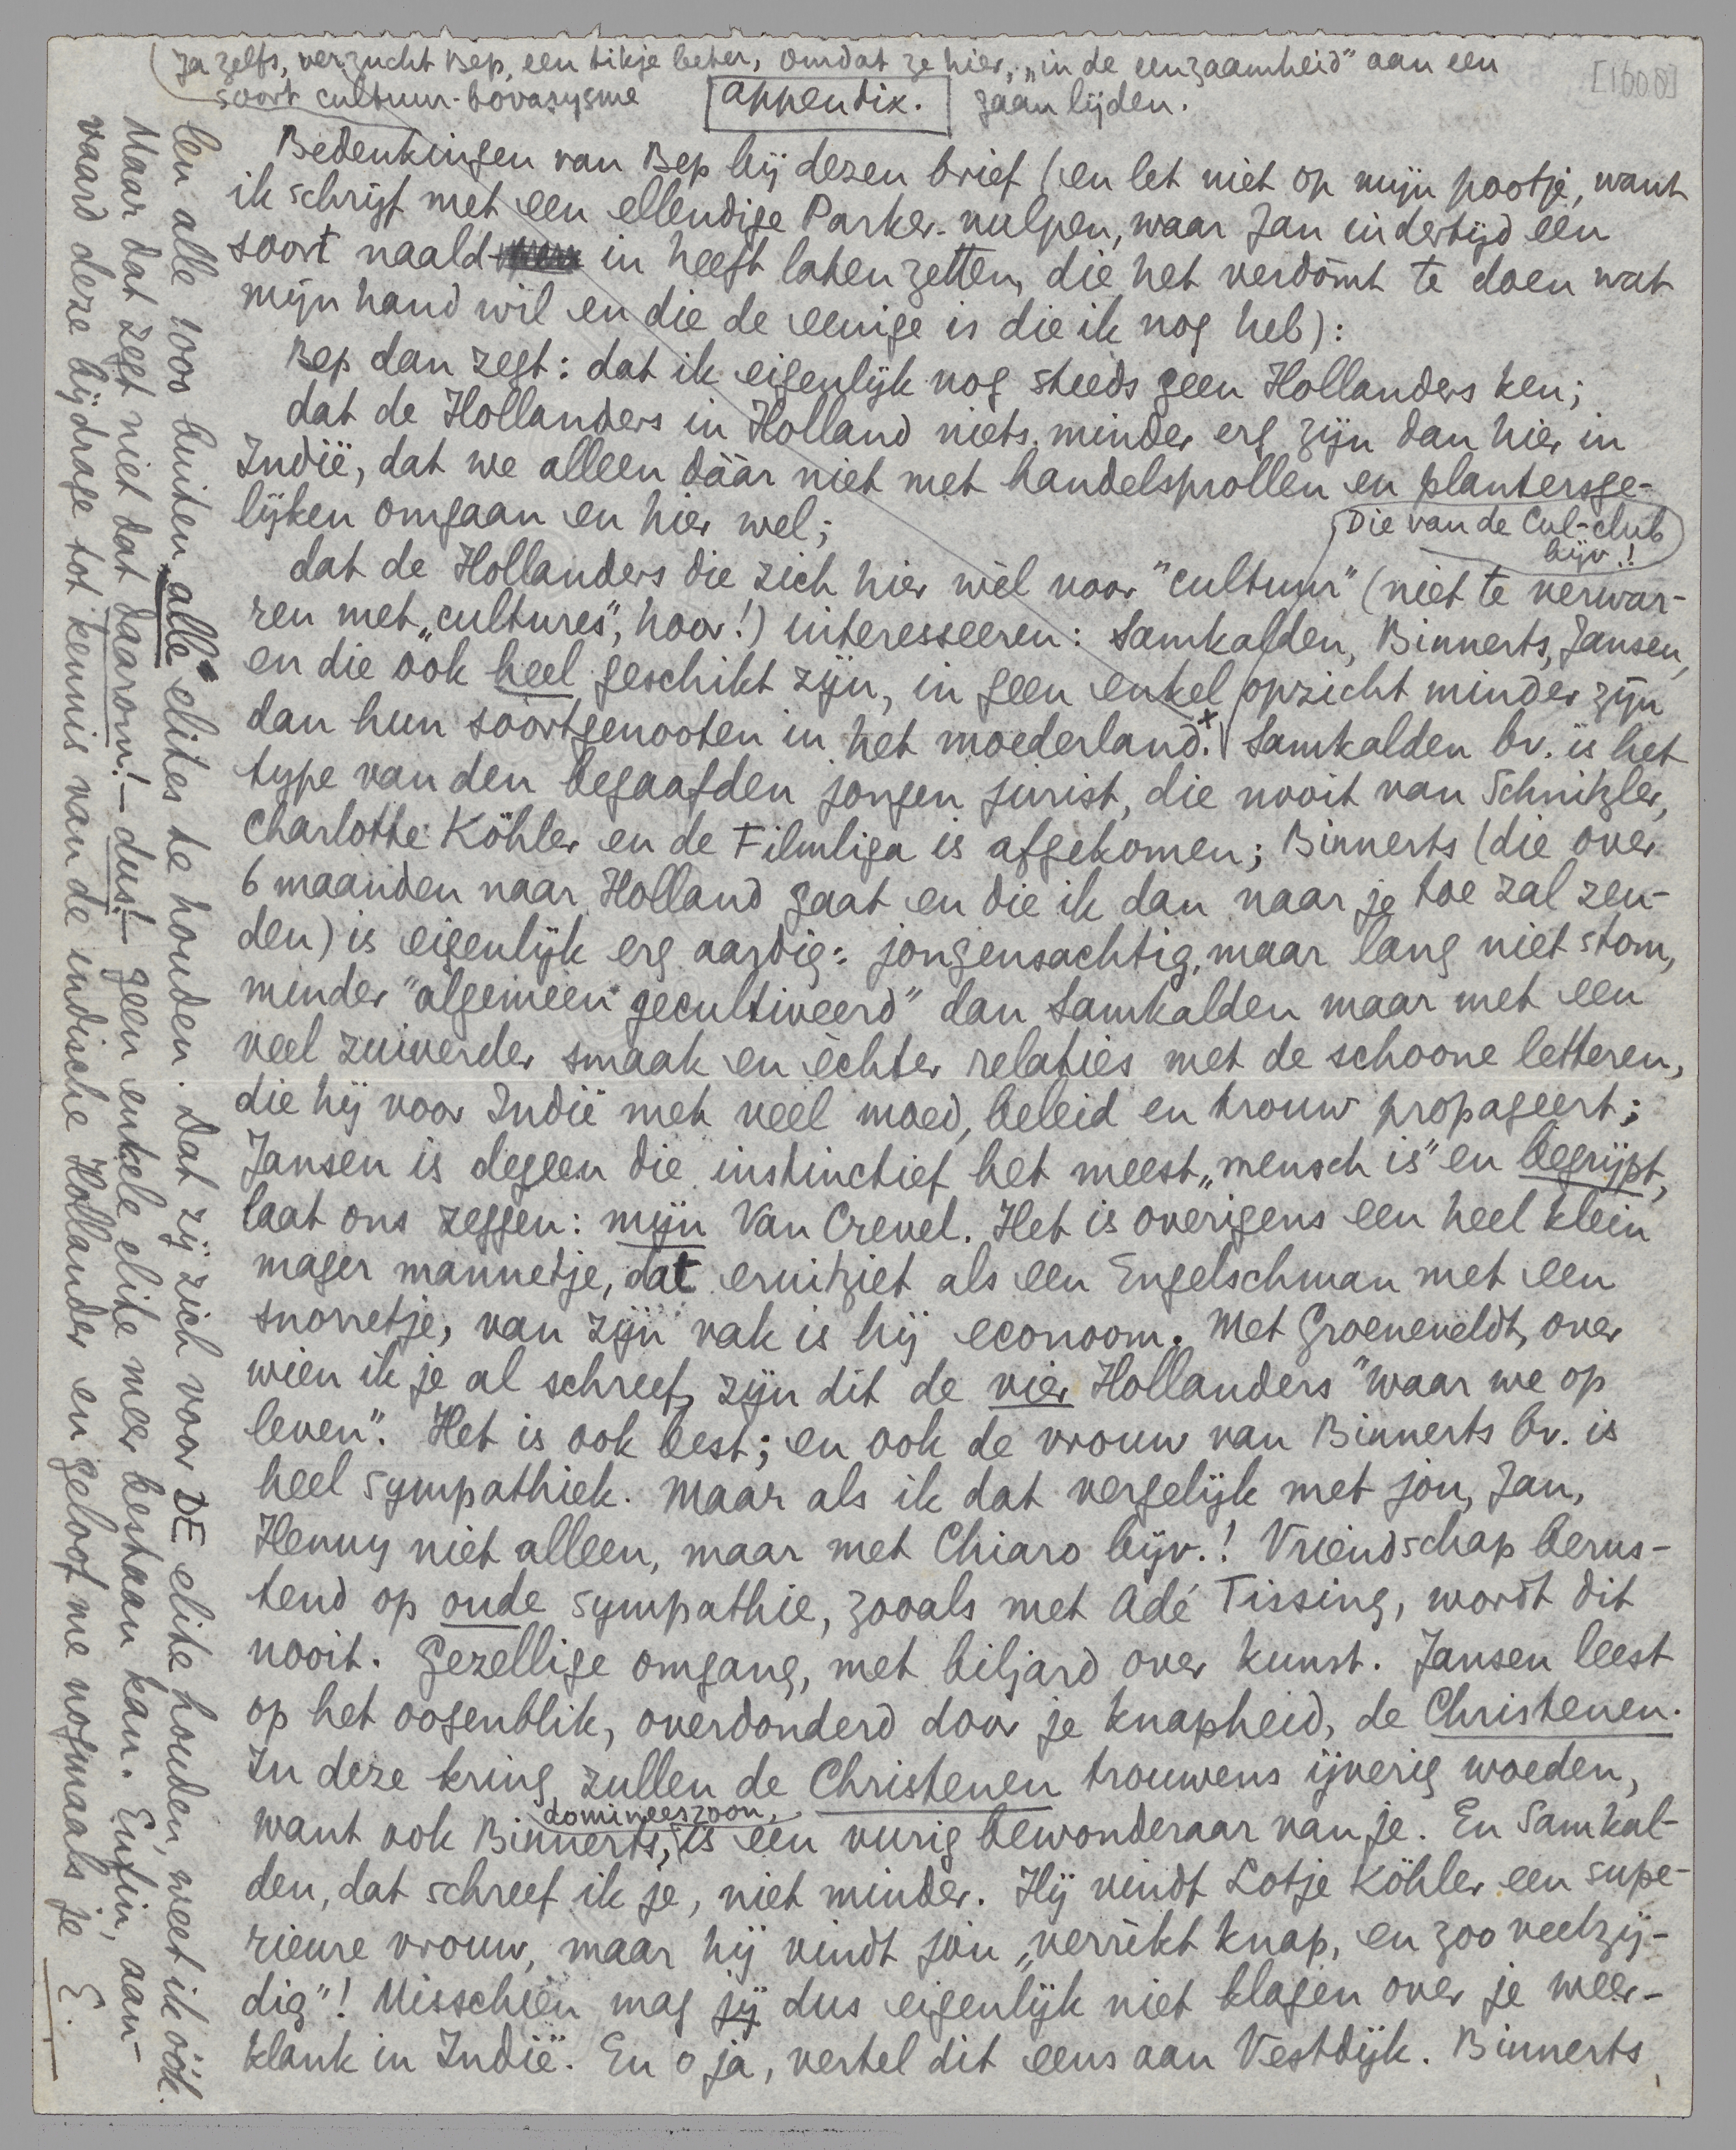 ja zelfs, verzucht Bep, een tikje beter, omdat ze hier, „in de eenzaamheid" aan een
soort cultuur-bovarysme gaan lijden.
[1600]
Appendix.
Bedenkingen van Bep bij dezen brief (en let niet op mijn pootje, want
ik schrijf met een ellendige Parker-vulpen, waar Jan indertijd een
soort naald in heeft laten zetten, die het verdòmt te doen wat
mijn hand wil en die de eenige is die ik nog heb):
Bep dan zegt: dat ik eigenlijk nog steeds geen Hollanders ken;
dat de Hollanders in Holland niets minder erg zijn dan hier in
Indië, dat we alleen dáár niet met handelsprollen en plantersge-
lijken omgaan en hier wel;
(Die van de Cul-club
bijv.!)
dat de Hollanders die zich hier wèl voor "cultuur" (niet te verwar-
ren met „cultures", hoor!) interesseeren: Samkalden, Binnerts, Jansen,
en die ook heel geschikt zijn, in geen enkel opzicht minder zijn
dan hun soortgenooten in het moederland.x Samkalden bv. is het
type van den begaafden jongen jurist, die nooit van Schnitzler,
Charlotte Köhler en de Filmliga is afgekomen; Binnerts (die over
6 maanden naar Holland gaat en die ik dan naar je toe zal zen-
den) is eigenlijk erg aardig: jongensachtig, maar lang niet stom,
minder "algemeen gecultiveerd" dan Samkalden maar met een
veel zuiverder smaak en èchter relaties met de schoone letteren,
die hij voor Indië met veel moed, beleid en trouw propageert;
Jansen is degeen die instinctief het meest „mensch is" en begrijpt,
laat ons zeggen: mijn Van Crevel. Het is overigens een heel klein
mager mannetje, dat eruitziet als een Engelschman met een
snorretje, van zijn vak is hij econoom. Met Groeneveldt, over
wien ik je al schreef, zijn dit de vier Hollanders "waar we op
leven". Het is ook best; en ook de vrouw van Binnerts bv. is
heel sympathiek. Maar als ik dat vergelijk met jou, Jan,
Henny niet alleen, maar met Chiaro bijv.! Vriendschap berus-
tend op oude sympathie, zooals met Adé Tissing, wordt dit
nooit. Gezellige omgang, met biljard over kunst. Jansen leest
op het oogenblik, overdonderd door je knapheid, de Christenen.
In deze kring zullen de Christenen trouwens ijverig woeden,
want ook Binnerts, domineeszoon, is een vurig bewonderaar van je. En Samkal-
den, dat schreef ik je, niet minder. Hij vindt Lotje Köhler een supe-
rieure vrouw, maar hij vindt jou „verrèkt knap, en zoo veelzij-
dig"! Misschien mag jij dus eigenlijk niet klagen over je weer-
klank in Indië. En o ja, vertel dit eens aan Vestdijk. Binnerts
len alle 1000 buiten alle elites te houden. Dat zij zich voor DE elite houden, weet ik óók.
Maar dat zegt niet dat daarom! – dus! – geen enkele elite meer bestaan kan. Enfin, aan-
vaard deze bijdrage tot kennis van de indische Hollander en geloof me nogmaals je E.